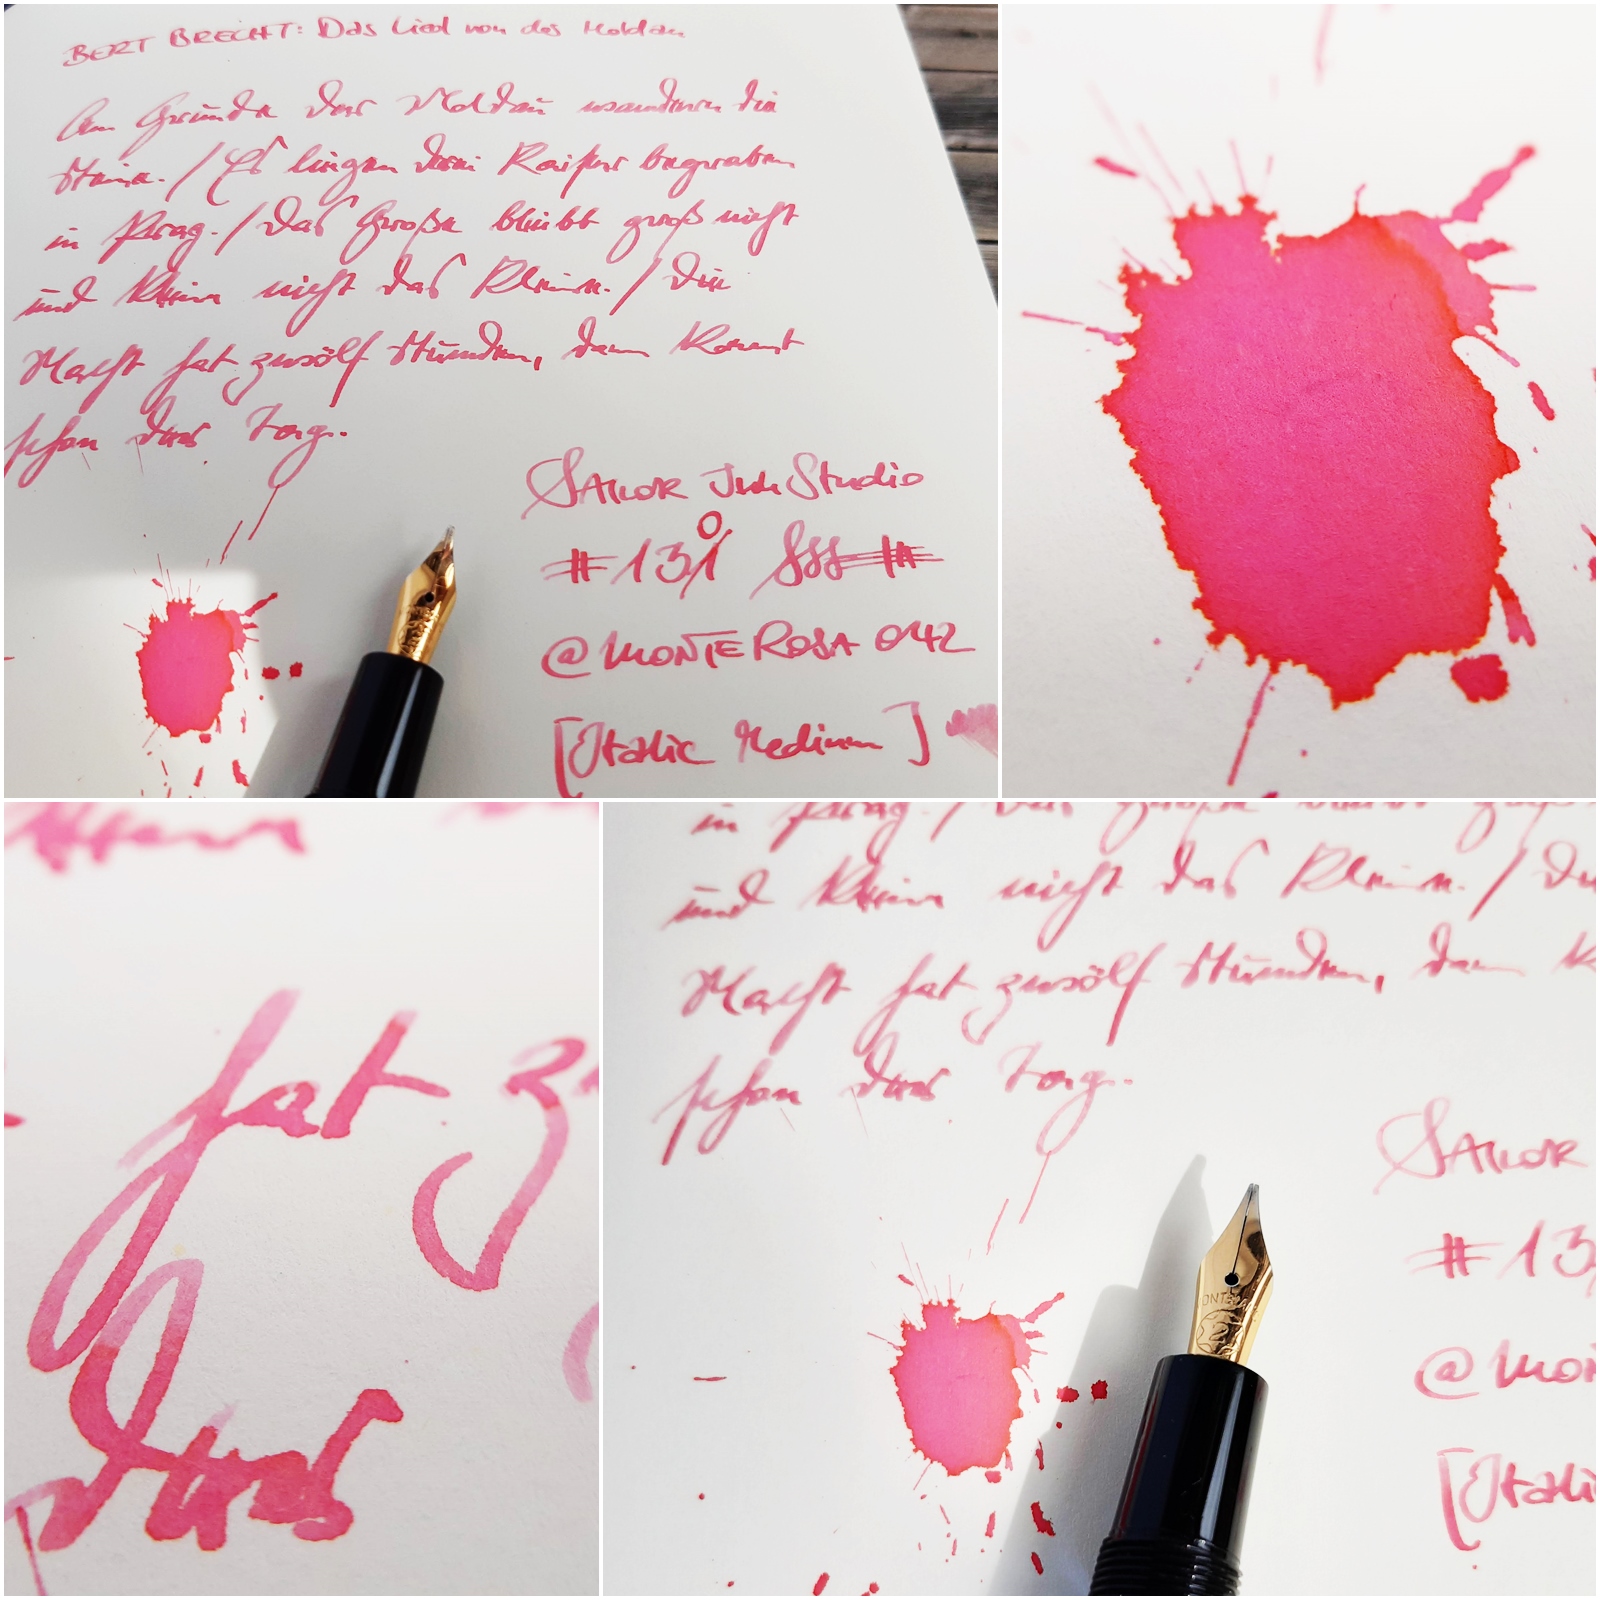 BERT BRECHT: Das Lied von der Moldau
Am Grunde der Moldau wandern die
Steine. / Es liegen drei Kaiser begraben
in Prag. / Das Große bleibt groß nicht
und klein nicht das Kleine. / Die
Nacht hat zwölf Stunden, dann kommt
schon der Tag.
SAILOR Ink Studio
#130
@MONTEROSA 042
[Italic Medium]
in Prag. / Das Große bleibt groß
und klein nicht das Kleine. / Di
Nacht hat zwölf Stunden, dann k
schon der Tag.
SAILOR
#13
@MO
[Itali
hat z
der